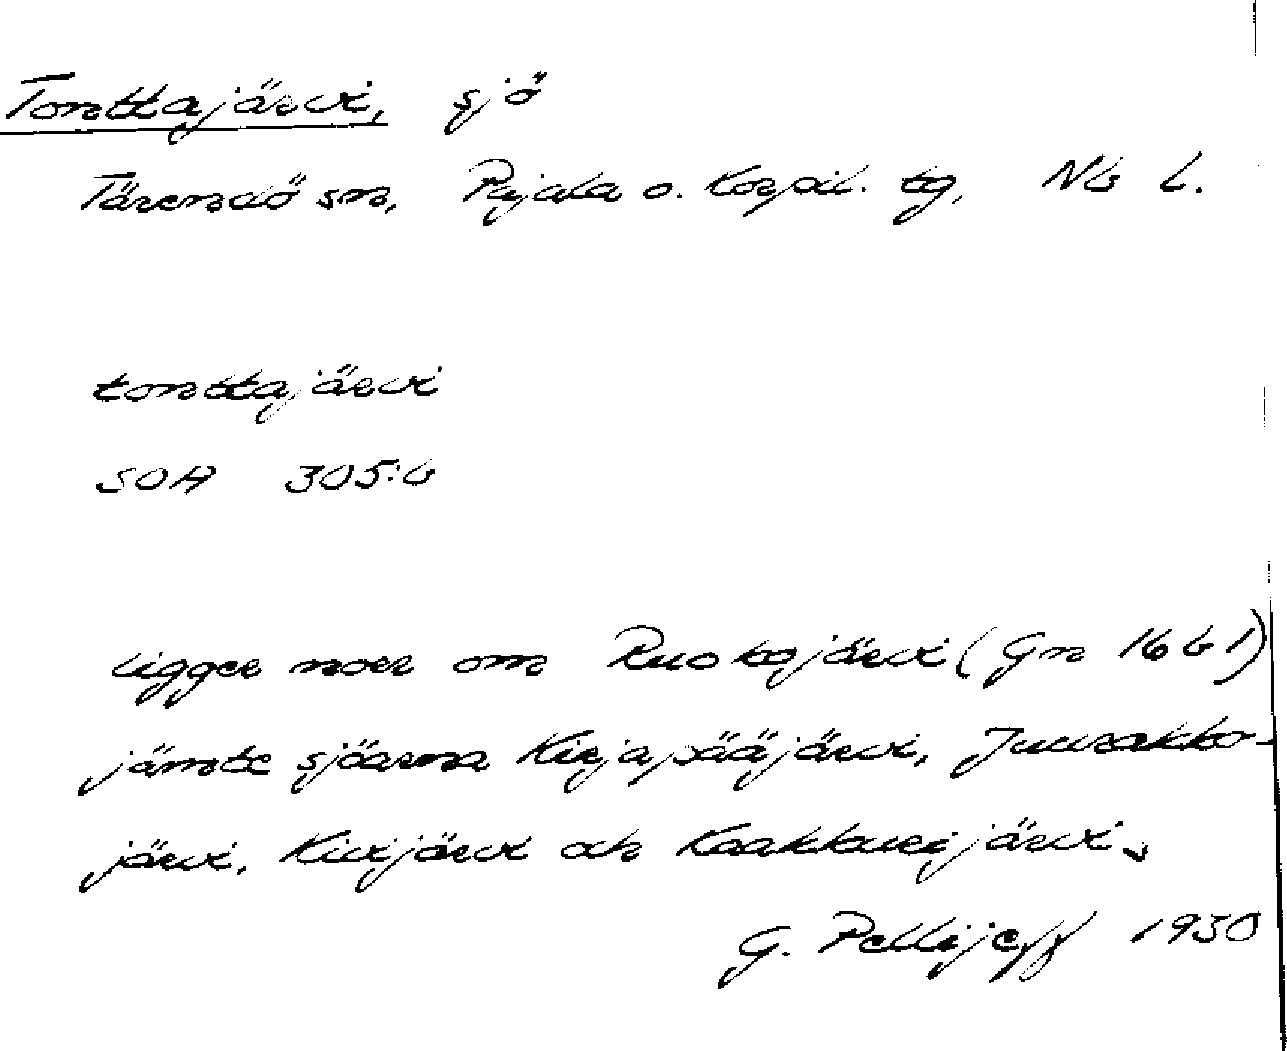 Tonttajärvi, sjö
Tärendö sn, Pajala o. Korpil. tg, Nb l.
tonttajärvi
SOA 305:6
ligger norr om Ruokojärvi (Gn 1661)
jämte sjöarna Kirjapääjärvi, Juurakko-
järvi, Kivijärvi och Kaakkurijärvi.
G. Pellijeff 1930